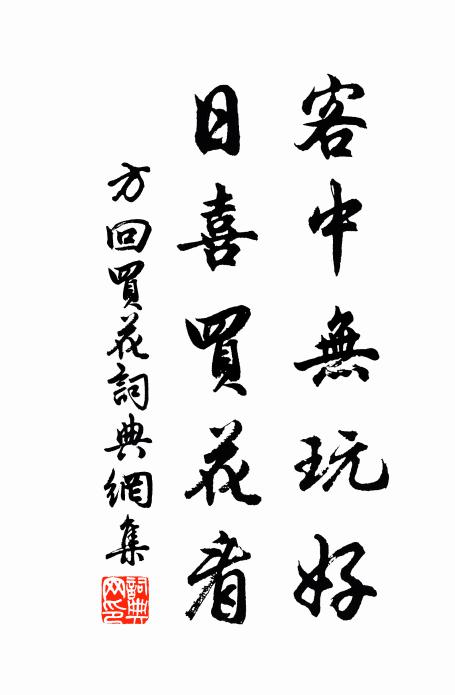 客中無玩好
日喜買花看
方回買花詞典網集
詞典網印